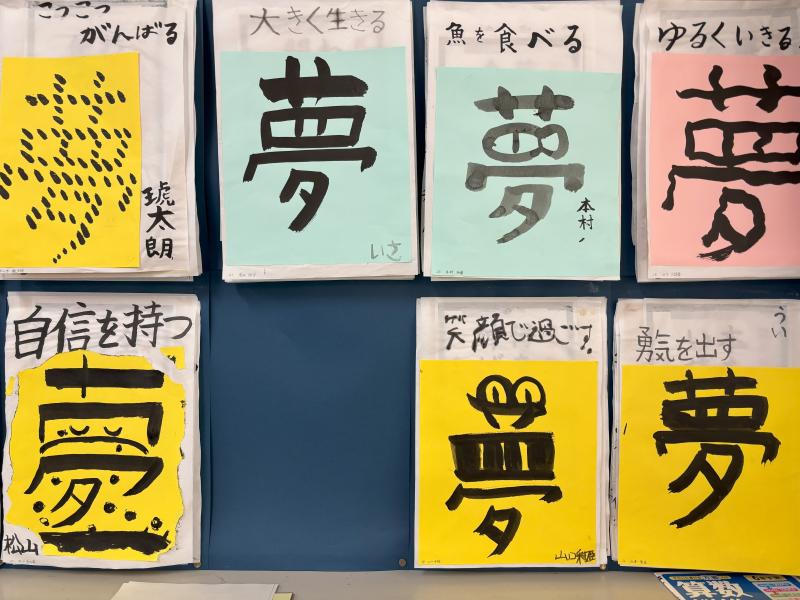 こつこつ
がんばる
夢
琥太朗
大きく生きる
夢
いさ
魚を食べる
夢
本村
ゆるくいきる
夢
自信を持つ
夢
松山
笑顔で過ごす。
夢
うい
勇気を出す
夢
算数